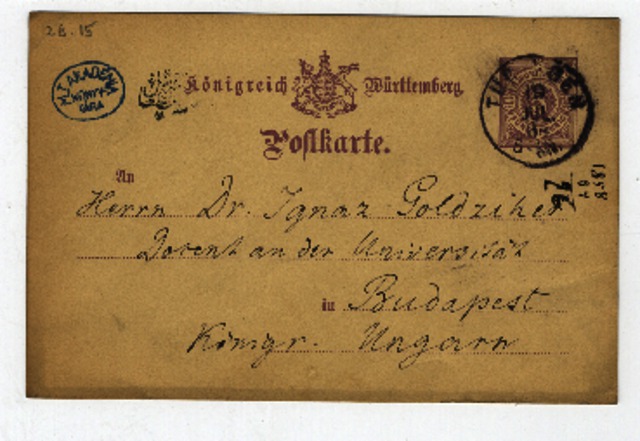 26.15
M.T. AKADEMIA
KÖNYVTÁRA
Königreich Württemberg.
Postkarte.
TÜBINGEN
19
JUL
An
Herrn Dr. Ignaz Goldziher
Docent an der Universität
in Budapest
Königr. Ungarn